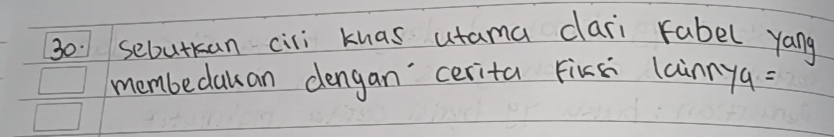 30. Sebutkan ciri khas utama dari Fabel yang
membedakan dengan cerita Fiksi lainnya =